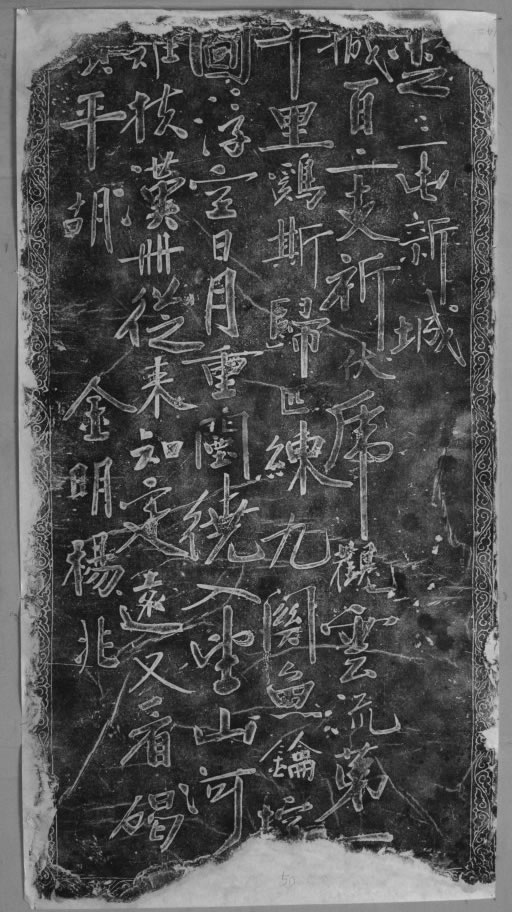 三屯新城
城百
伏
觀雲流第一
千里鷄斯歸匹練九關魚鑰控
圖浮空日月重闉繞入望山河
雄扶漢冊從來知定遠又看碣
平胡
金明楊兆